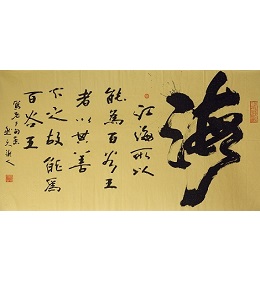 海
江海所以
能为百谷王
者以其善
下之故能為
百谷王